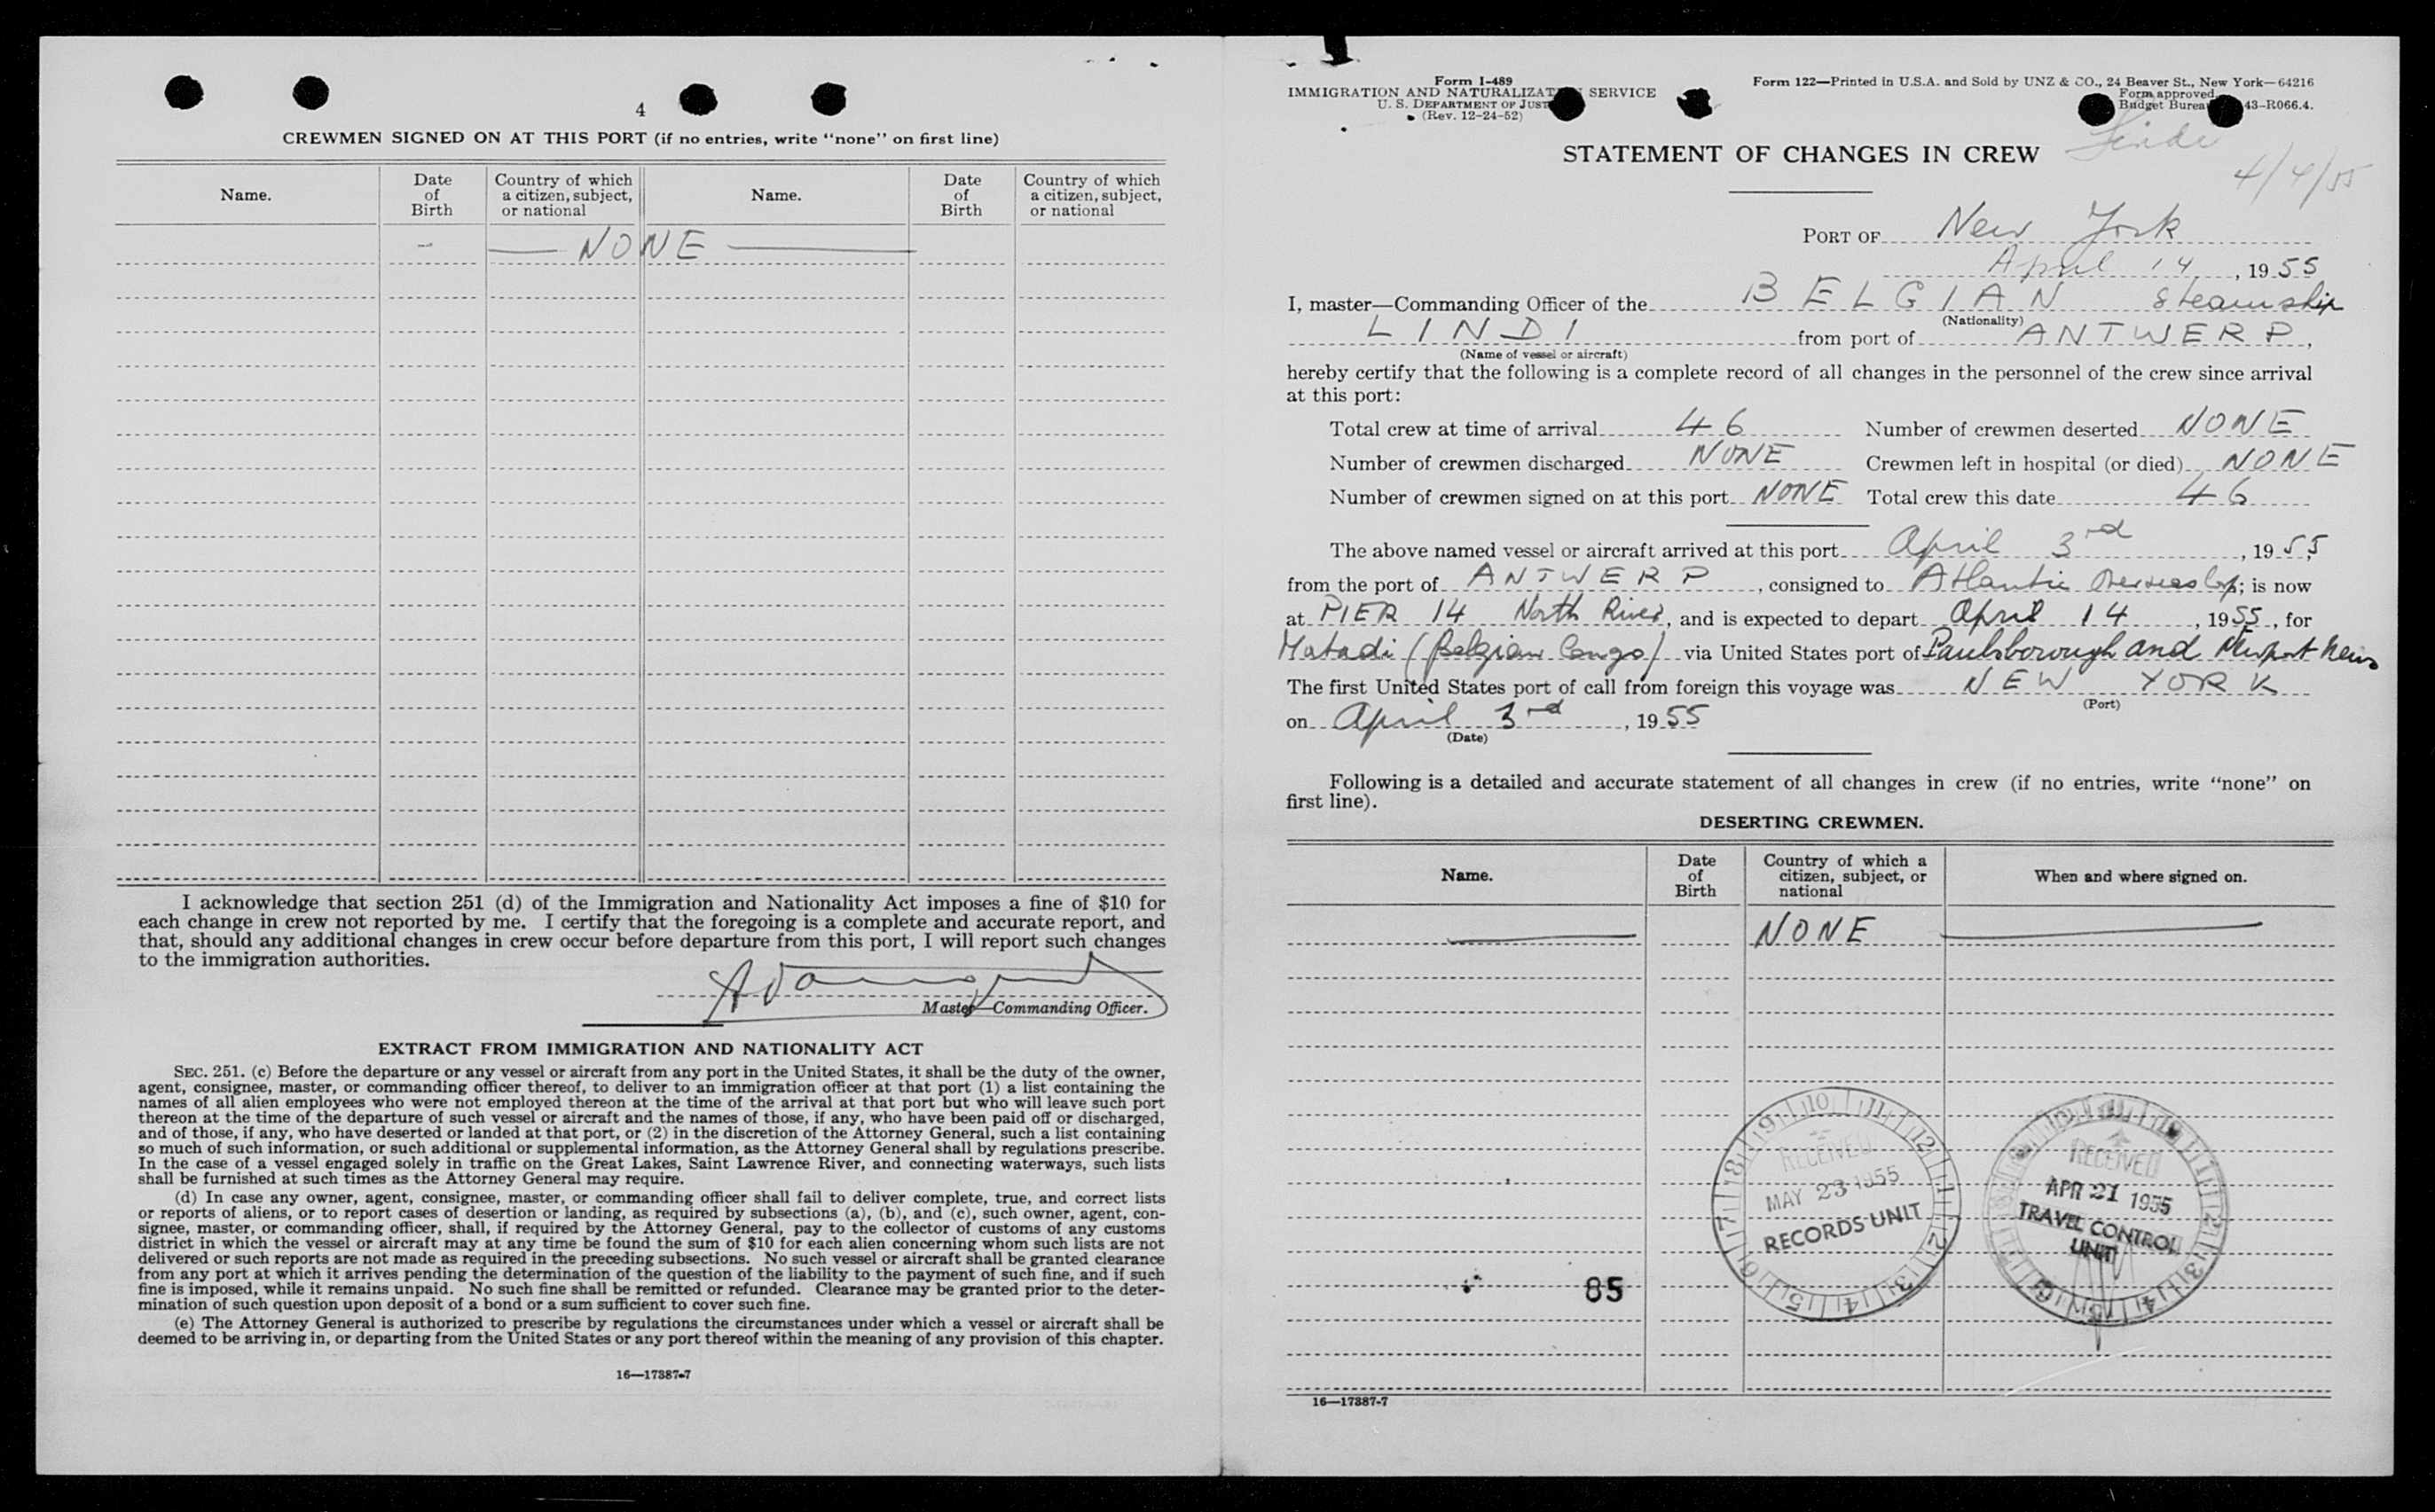 4
CREWMEN SIGNED ON AT THIS PORT (if no entries, write “none” on first line)
Name. Date of Birth Country of which a citizen, subject, or national Name. Date of Birth Country of which a citizen, subject, or national
— NONE —
I acknowledge that section 251 (d) of the Immigration and Nationality Act imposes a fine of $10 for
each change in crew not reported by me. I certify that the foregoing is a complete and accurate report, and
that, should any additional changes in crew occur before departure from this port, I will report such changes
to the immigration authorities.
Master—Commanding Officer.
EXTRACT FROM IMMIGRATION AND NATIONALITY ACT
SEC. 251. (c) Before the departure or any vessel or aircraft from any port in the United States, it shall be the duty of the owner,
agent, consignee, master, or commanding officer thereof, to deliver to an immigration officer at that port (1) a list containing the
names of all alien employees who were not employed thereon at the time of the arrival at that port but who will leave such port
thereon at the time of the departure of such vessel or aircraft and the names of those, if any, who have been paid off or discharged,
and of those, if any, who have deserted or landed at that port, or (2) in the discretion of the Attorney General, such a list containing
so much of such information, or such additional or supplemental information, as the Attorney General shall by regulations prescribe.
In the case of a vessel engaged solely in traffic on the Great Lakes, Saint Lawrence River, and connecting waterways, such lists
shall be furnished at such times as the Attorney General may require.
(d) In case any owner, agent, consignee, master, or commanding officer shall fail to deliver complete, true, and correct lists
or reports of aliens, or to report cases of desertion or landing, as required by subsections (a), (b), and (c), such owner, agent, con-
signee, master, or commanding officer, shall, if required by the Attorney General, pay to the collector of customs of any customs
district in which the vessel or aircraft may at any time be found the sum of $10 for each alien concerning whom such lists are not
delivered or such reports are not made as required in the preceding subsections. No such vessel or aircraft shall be granted clearance
from any port at which it arrives pending the determination of the question of the liability to the payment of such fine, and if such
fine is imposed, while it remains unpaid. No such fine shall be remitted or refunded. Clearance may be granted prior to the deter-
mination of such question upon deposit of a bond or a sum sufficient to cover such fine.
(e) The Attorney General is authorized to prescribe by regulations the circumstances under which a vessel or aircraft shall be
deemed to be arriving in, or departing from the United States or any port thereof within the meaning of any provision of this chapter.
16—17387-7
Form I-489
IMMIGRATION AND NATURALIZAT SERVICE
U. S. DEPARTMENT OF JUST
(Rev. 12-24-52)
Form 122—Printed in U.S.A. and Sold by UNZ & CO., 24 Beaver St., New York—64216
Form approved.
Budget Burea 43-R066.4.
Lindi
4/4/55
STATEMENT OF CHANGES IN CREW
PORT OF New York
April 14, 1955
I, master—Commanding Officer of the BELGIAN steamship
(Nationality)
LINDI from port of ANTWERP,
(Name of vessel or aircraft)
hereby certify that the following is a complete record of all changes in the personnel of the crew since arrival
at this port:
Total crew at time of arrival 46 Number of crewmen deserted NONE
Number of crewmen discharged NONE Crewmen left in hospital (or died) NONE
Number of crewmen signed on at this port NONE Total crew this date 46
The above named vessel or aircraft arrived at this port April 3rd, 1955
from the port of ANTWERP, consigned to Atlantic Overseas Corp; is now
at PIER 14 North River, and is expected to depart April 14, 1955, for
Matadi (Belgian Congo) via United States port of Paulsborough and Newport News
The first United States port of call from foreign this voyage was NEW YORK
(Port)
on April 3rd, 1955
(Date)
Following is a detailed and accurate statement of all changes in crew (if no entries, write “none” on
first line).
DESERTING CREWMEN.
Name. Date of Birth Country of which a citizen, subject, or national When and where signed on.
— NONE —
RECEIVED
MAY 23 1955
RECORDS UNIT
RECEIVED
APR 21 1955
TRAVEL CONTROL
UNIT
85
16—17387-7